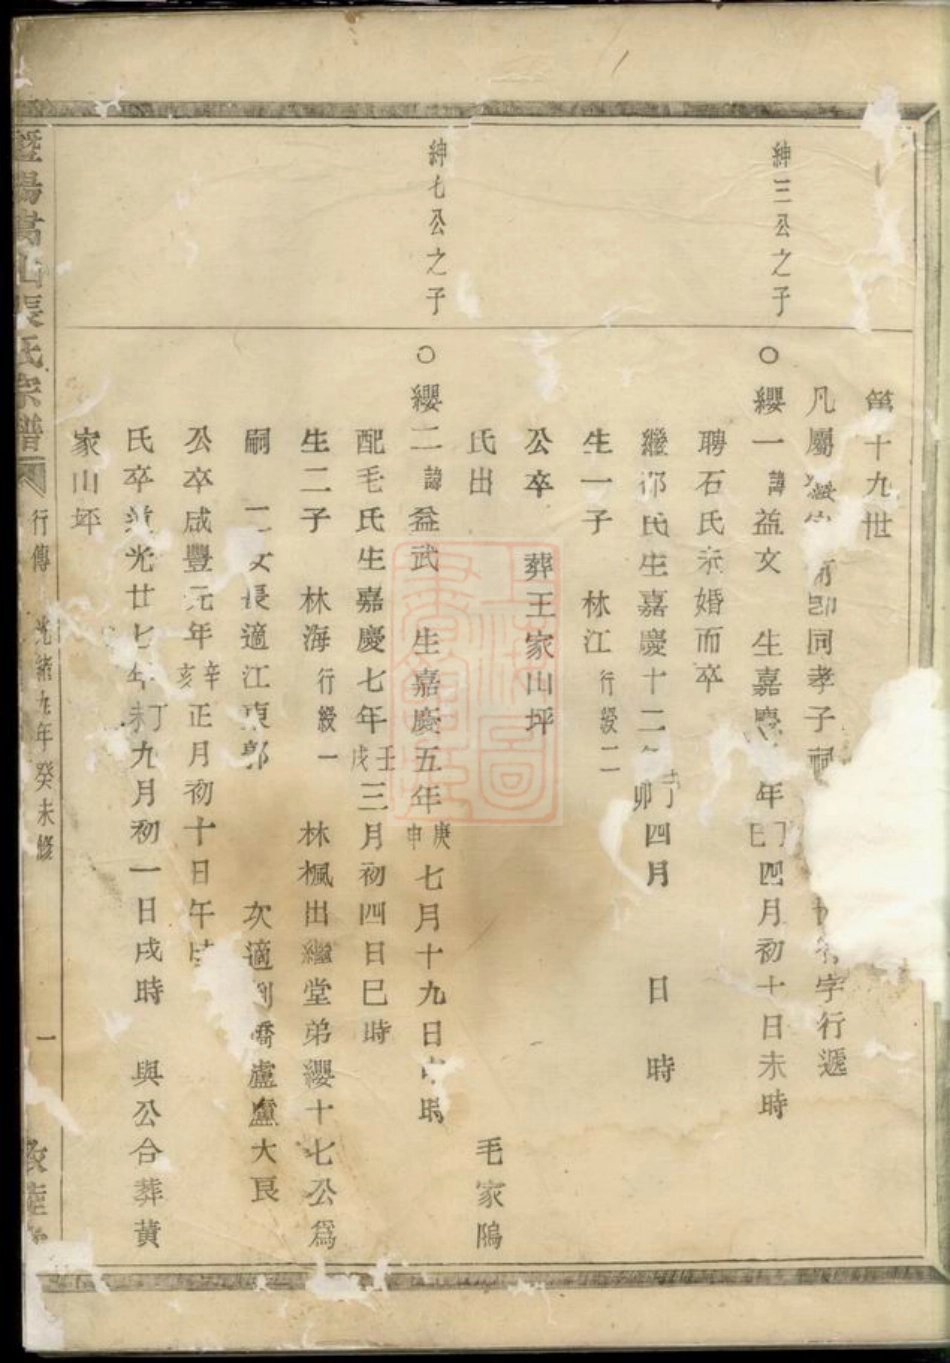 第十九世
凡屬 同孝子祠 字行遞
紳三公之子
○纓一諱益文 生嘉慶 年 巳四月初十日未時
聘石氏未婚而卒
繼 氏生嘉慶十二年丁卯四月 日 時
生一子 林江行綬二
公卒 葬王家山坪
氏出 毛家隖
紳七公之子
○纓二諱益武 生嘉慶五年庚申七月十九日 時
配毛氏生嘉慶七年壬戌三月初四日巳時
生二子 林海行綬一 林楓出繼堂弟纓十七公爲
嗣 二女長適江東郭 次適 盧盧大良
公卒咸豐元年辛亥正月初十日午時
氏卒道光廿七年丁未九月初一日戌時 與公合葬黃
家山坪
暨陽 山張氏宗譜 行傳 光緒九年癸未修 一